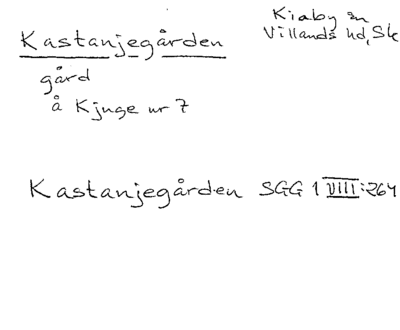 Kastanjegården
Kiaby sn
Villands hd, Sk
gård
å Kjuge nr 7
Kastanjegården SGG 1 VIII:264